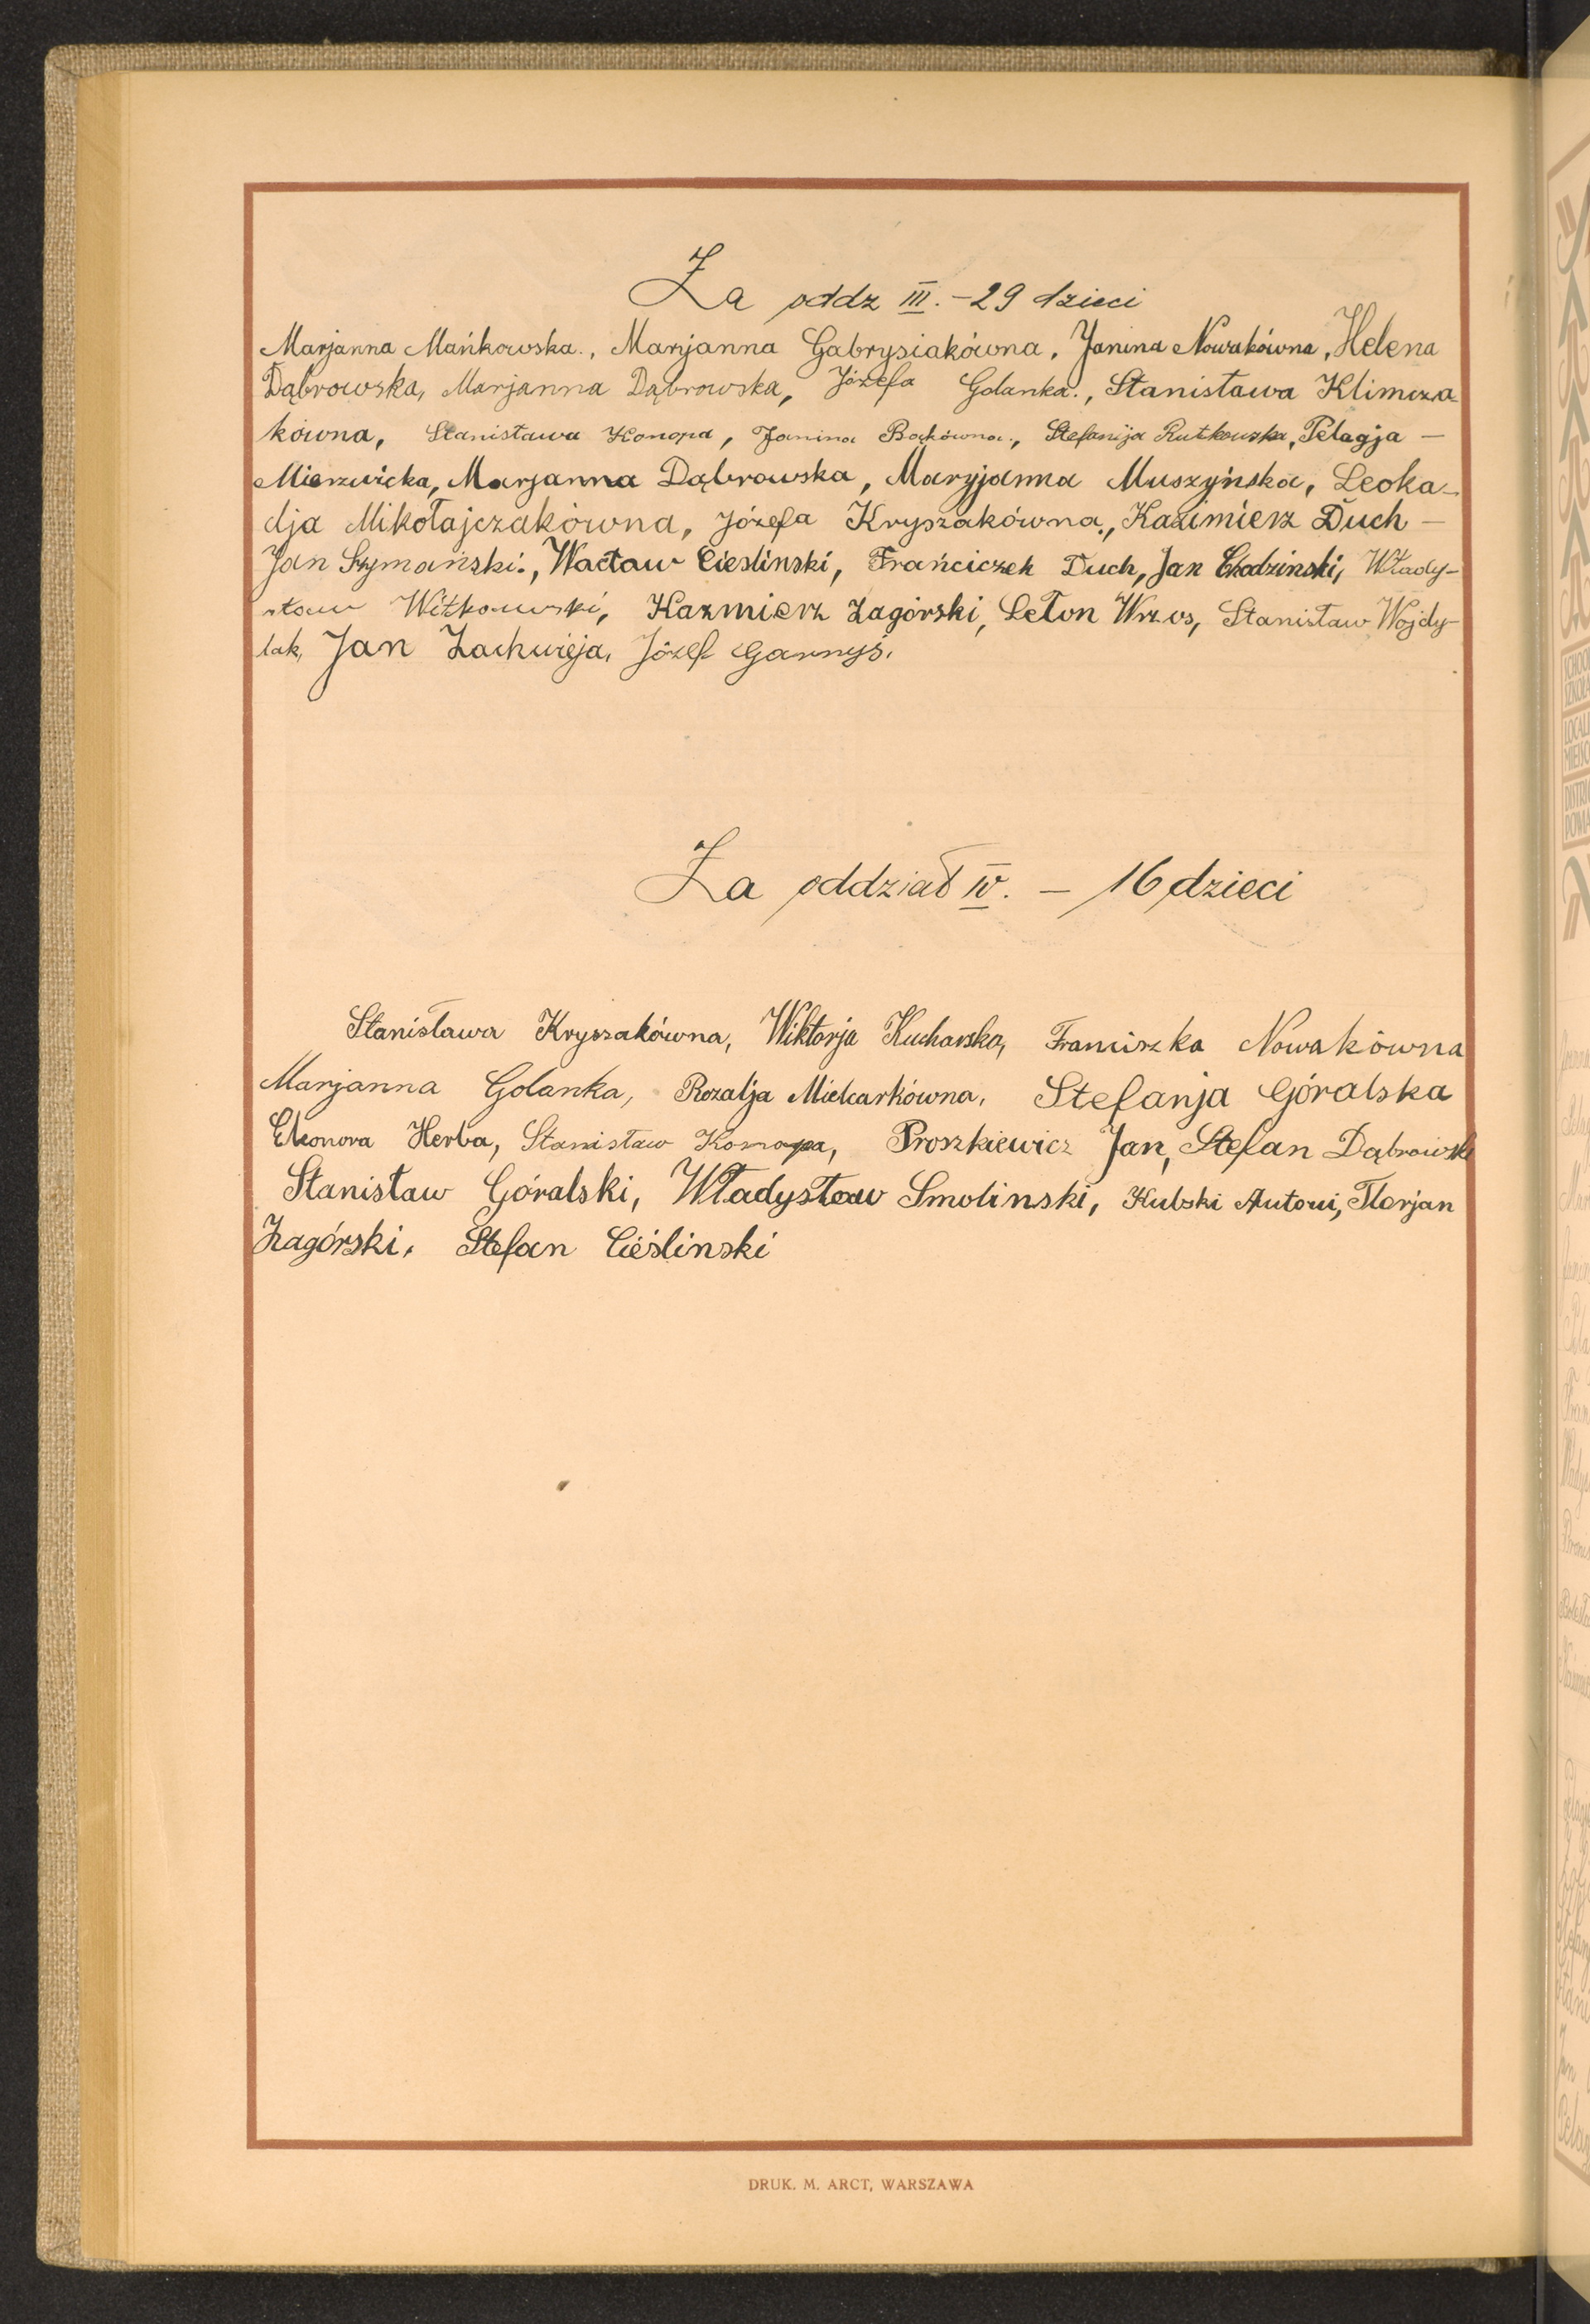 Za oddz III. – 29 dzieci
Marjanna Mańkowska., Marjanna Gabrysiakówna, Janina Nowakówna, Helena
Dąbrowska, Marjanna Dąbrowska, Józefa Golanka., Stanisława Klimcza-
kówna, Stanisława Konopa, Janina Bąkówna., Stefanija Rutkowska, Pelagja –
Mierzwicka, Marjanna Dąbrowska, Maryjanna Muszyńska, Leoka-
dja Mikołajczakówna, Józefa Kryszakówna., Kazimierz Duch –
Jan Szymański., Wacław Cieslinski, Frańciczek Duch, Jan Chodzinski, Włady-
sław Witkowski, Kazmierz Zagórski, Leton Wrzos, Stanisław Wojdy-
lak, Jan Zachwieja, Józef Garnyś.
Za oddział IV. – 16 dzieci
Stanisława Kryszakówna, Wiktorja Kucharska, Franciszka Nowakówna
Marjanna Golanka, Rozalja Mielcarkówna, Stefanja Góralska
Eleonora Herba, Stanisław Konopa, Proszkiewicz Jan, Stefan Dąbrowski
Stanisław Góralski, Władysław Smolinski, Kubski Antoni, Florjan
Zagórski, Stefan Cieślinski
DRUK. M. ARCT, WARSZAWA